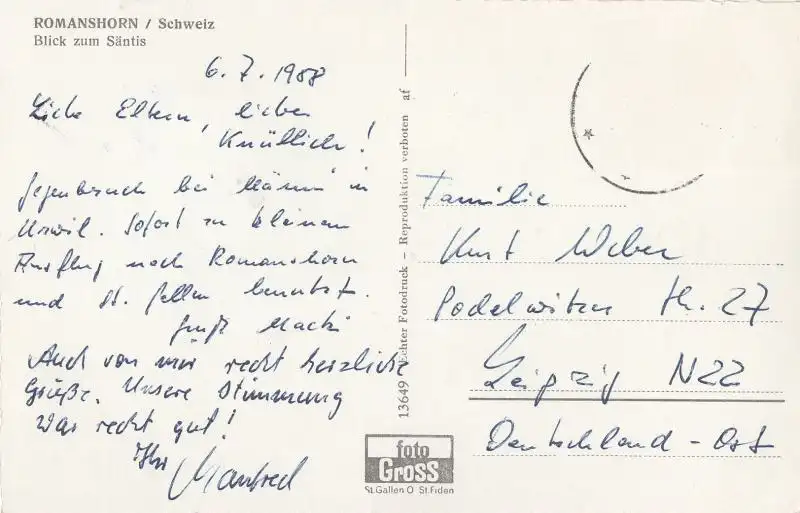 ROMANSHORN / Schweiz
Blick zum Säntis
6.7.1958
Liebe Eltern, lieber
Knüllich!
Gegenbesuch bei Männi in
Uzwil. Sofort zu kleinem
Ausflug nach Romanshorn
und St. Gallen benutzt.
Gruß
Auch von mir recht herzliche
Grüße. Unsere Stimmung
war recht gut!
Ihr Manfred
13649 Echter Fotodruck - Reproduktion verboten af
Familie
Kurt Weber
Podelwitzer Str. 27
Leipzig N22
Deutschland-Ost
foto
Gross
St.Gallen O St.Fiden